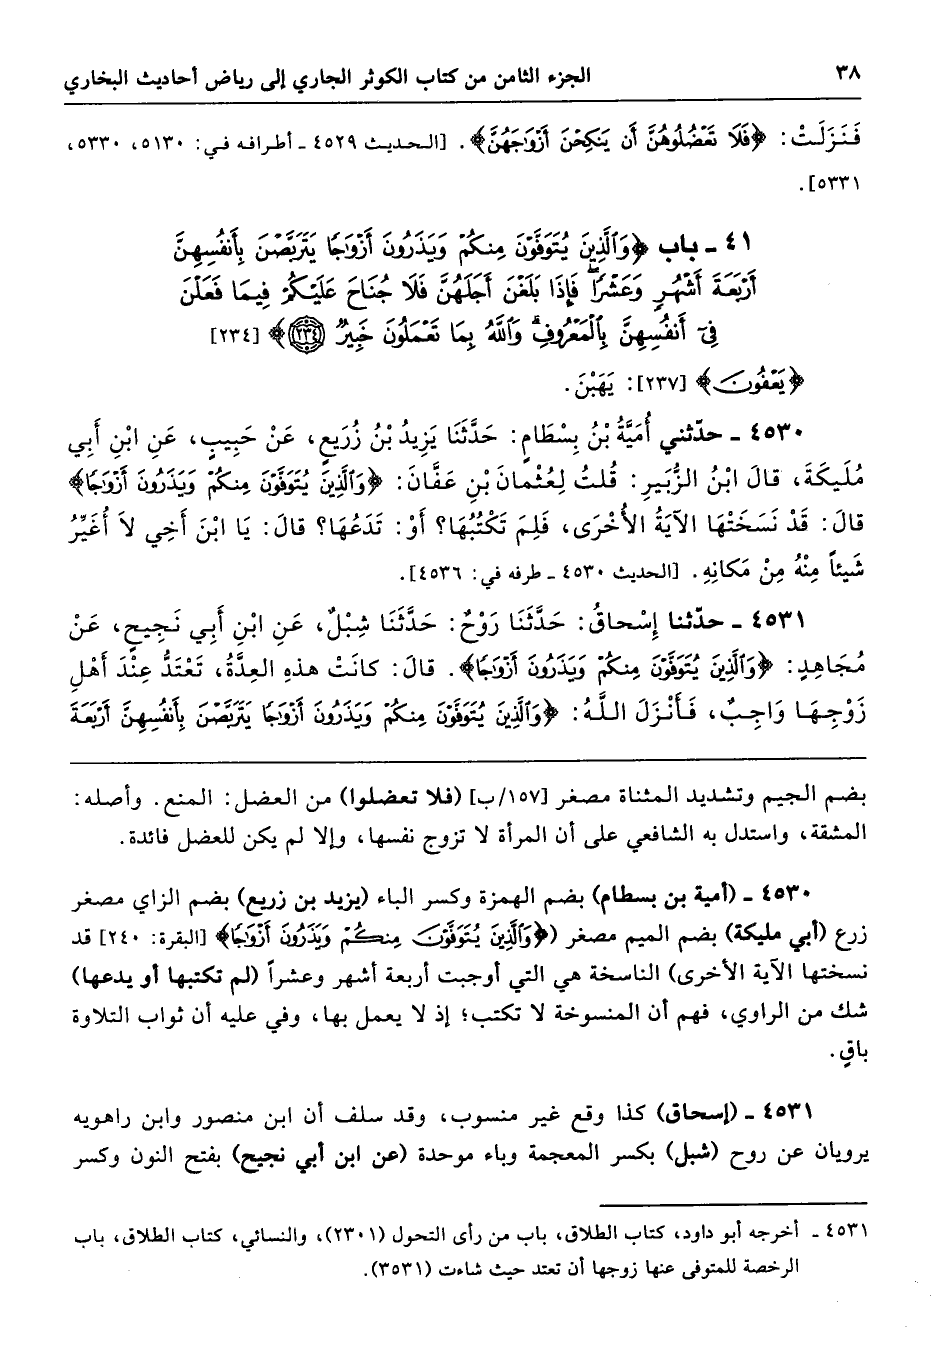 ٣٨ الجزء الثامن من كتاب الكوثر الجاري إلى رياض أحاديث البخاري
فَنَزَلَتْ: ﴿فَلَا تَعْضُلُوهُنَّ أَن يَنكِحْنَ أَزْوَٰجَهُنَّ﴾. [الحديث ٤٥٢٩ ـ أطرافه في: ٥١٣٠، ٥٣٣٠،
٥٣٣١].
٤١ ـ باب ﴿وَالَّذِينَ يُتَوَفَّوْنَ مِنكُمْ وَيَذَرُونَ أَزْوَٰجًا يَتَرَبَّصْنَ بِأَنفُسِهِنَّ
أَرْبَعَةَ أَشْهُرٍ وَعَشْرًا ۖ فَإِذَا بَلَغْنَ أَجَلَهُنَّ فَلَا جُنَاحَ عَلَيْكُمْ فِيمَا فَعَلْنَ
فِىٓ أَنفُسِهِنَّ بِالْمَعْرُوفِ ۗ وَاللَّهُ بِمَا تَعْمَلُونَ خَبِيرٌ ﴿٢٣٤﴾﴾ [٢٣٤]
﴿يَعْفُونَ﴾ [٢٣٧]: يَهَبْنَ.
٤٥٣٠ ـ حدّثني أُمَيَّةُ بْنُ بِسْطَامٍ: حَدَّثَنَا يَزِيدُ بْنُ زُرَيعٍ، عَنْ حَبِيبٍ، عَنِ ابْنِ أَبِي
مُلَيكَةَ، قالَ ابْنُ الزُّبَيرِ: قُلتُ لِعُثْمانَ بْنِ عَفَّانَ: ﴿وَالَّذِينَ يُتَوَفَّوْنَ مِنكُمْ وَيَذَرُونَ أَزْوَٰجًا﴾
قالَ: قَدْ نَسَخَتْهَا الآيَةُ الأُخْرَى، فَلِمَ تَكْتُبُهَا؟ أَوْ: تَدَعُهَا؟ قالَ: يَا ابْنَ أَخِي لاَ أُغَيِّرُ
شَيئاً مِنْهُ مِنْ مَكانِهِ. [الحديث ٤٥٣٠ ـ طرفه في: ٤٥٣٦].
٤٥٣١ ـ حدّثنا إِسْحاقُ: حَدَّثَنَا رَوْحٌ: حَدَّثَنَا شِبْلٌ، عَنِ ابْنِ أَبِي نَجِيحٍ، عَنْ
مُجَاهِدٍ: ﴿وَالَّذِينَ يُتَوَفَّوْنَ مِنكُمْ وَيَذَرُونَ أَزْوَٰجًا﴾. قالَ: كانَتْ هذهِ العِدَّةُ، تَعْتَدُّ عِنْدَ أَهْلِ
زَوْجِهَا وَاجِبٌ، فَأَنْزَلَ اللَّهُ: ﴿وَالَّذِينَ يُتَوَفَّوْنَ مِنكُمْ وَيَذَرُونَ أَزْوَٰجًا يَتَرَبَّصْنَ بِأَنفُسِهِنَّ أَرْبَعَةَ
بضم الجيم وتشديد المثناة مصغر [١٥٧/ب] (فلا تعضلوا) من العضل: المنع. وأصله:
المشقة، واستدل به الشافعي على أن المرأة لا تزوج نفسها، وإلا لم يكن للعضل فائدة.
٤٥٣٠ ـ (أمية بن بسطام) بضم الهمزة وكسر الباء (يزيد بن زريع) بضم الزاي مصغر
زرع (أبي مليكة) بضم الميم مصغر (﴿وَالَّذِينَ يُتَوَفَّوْنَ مِنكُمْ وَيَذَرُونَ أَزْوَٰجًا﴾ [البقرة: ٢٤٠] قد
نسختها الآية الأخرى) الناسخة هي التي أوجبت أربعة أشهر وعشراً (لم تكتبها أو يدعها)
شك من الراوي، فهم أن المنسوخة لا تكتب؛ إذ لا يعمل بها، وفي عليه أن ثواب التلاوة
باقٍ.
٤٥٣١ ـ (إسحاق) كذا وقع غير منسوب، وقد سلف أن ابن منصور وابن راهويه
يرويان عن روح (شبل) بكسر المعجمة وباء موحدة (عن ابن أبي نجيح) بفتح النون وكسر
٤٥٣١ ـ أخرجه أبو داود، كتاب الطلاق، باب من رأى التحول (٢٣٠١)، والنسائي، كتاب الطلاق، باب
الرخصة للمتوفى عنها زوجها أن تعتد حيث شاءت (٣٥٣١).